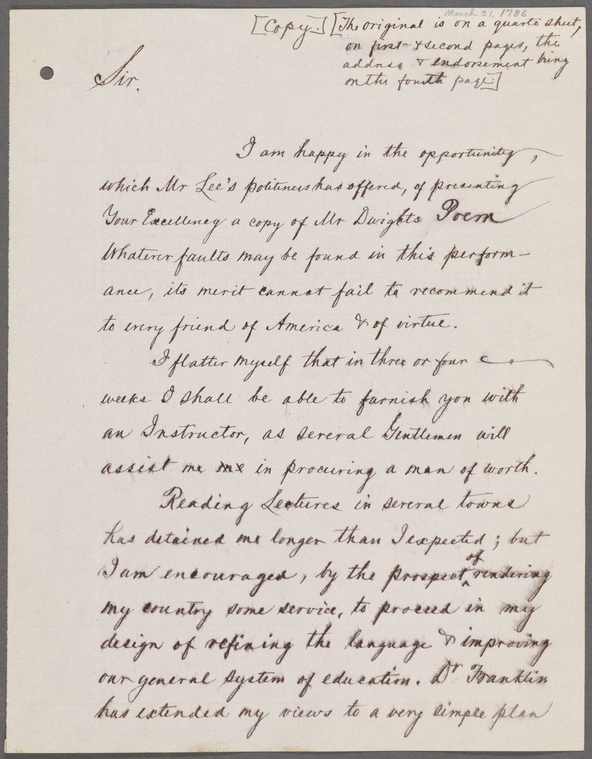 March 31, 1786
[Copy.] [The original is on a quarto sheet,
on first & second pages, the
address & endorsement being
on the fourth page.]
Sir.
I am happy in the opportunity,
which Mr Lee's politeness has offered, of presenting
Your Excellency a copy of Mr Dwights Poem
Whatever faults may be found in this perform-
ance, its merit cannot fail to recommend it
to every friend of America & of virtue.
I flatter myself that in three or four
weeks I shall be able to furnish you with
an Instructor, as several Gentlemen will
assist me me in procuring a man of worth.
Reading Lectures in several towns
has detained me longer than I expected; but
I am encouraged, by the prospect of rendering
my country some service, to proceed in my
design of refining the language & improving
our general system of education. Dr Franklin
has extended my views to a very simple plan